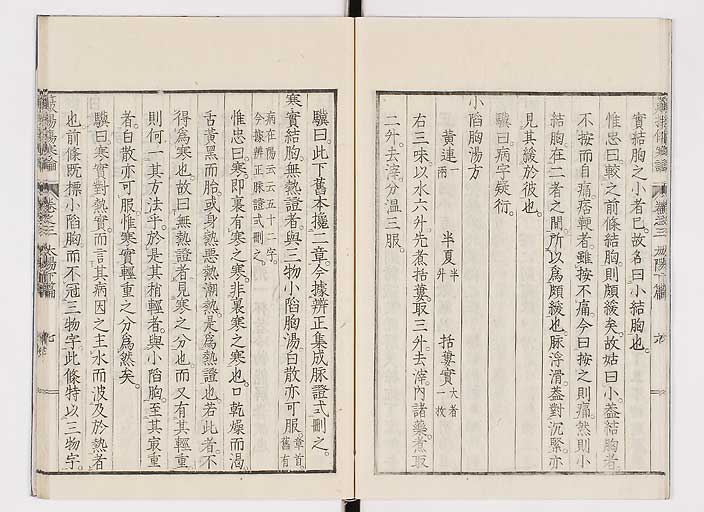 實結胸之小者已故名曰小結胸也
惟忠曰較之前條結胸則頗緩矣故姑曰小蓋結胸者
不按而自痛痞鞕者雖按不痛今曰按之則痛然則小
結胸在二者之間所以爲頗緩也脉浮滑蓋對沉緊亦
見其緩於彼也
驥曰病字疑衍
小陷胸湯方
黃連一兩　半夏半升　栝蔞實大者一枚
右三味以水六升先煮栝蔞取三升去滓內諸藥煮取
二升去滓分溫三服
驥曰此下舊本攙二章今據辨正集成脉證式刪之
寒實結胸無熱證者與三物小陷胸湯白散亦可服章首舊有
病在陽云云五十二字
今據辨正脉證式刪之
惟忠曰寒即裏有寒之寒非裏寒之寒也口乾燥而渴
舌黃黑而胎或身熱惡熱潮熱是爲熱證也若此者不
得爲寒也故曰無熱證者見寒之分也而又有其輕重
則何一其方法乎於是其稍輕者與小陷胸至其衷重
者白散亦可服惟寒實輕重之分爲然矣
驥曰寒實對熱實而言其病因之主水而波及於熱者
也前條既標小陷胸而不冠三物字此條特以三物字
卷之三 太陽下篇 九